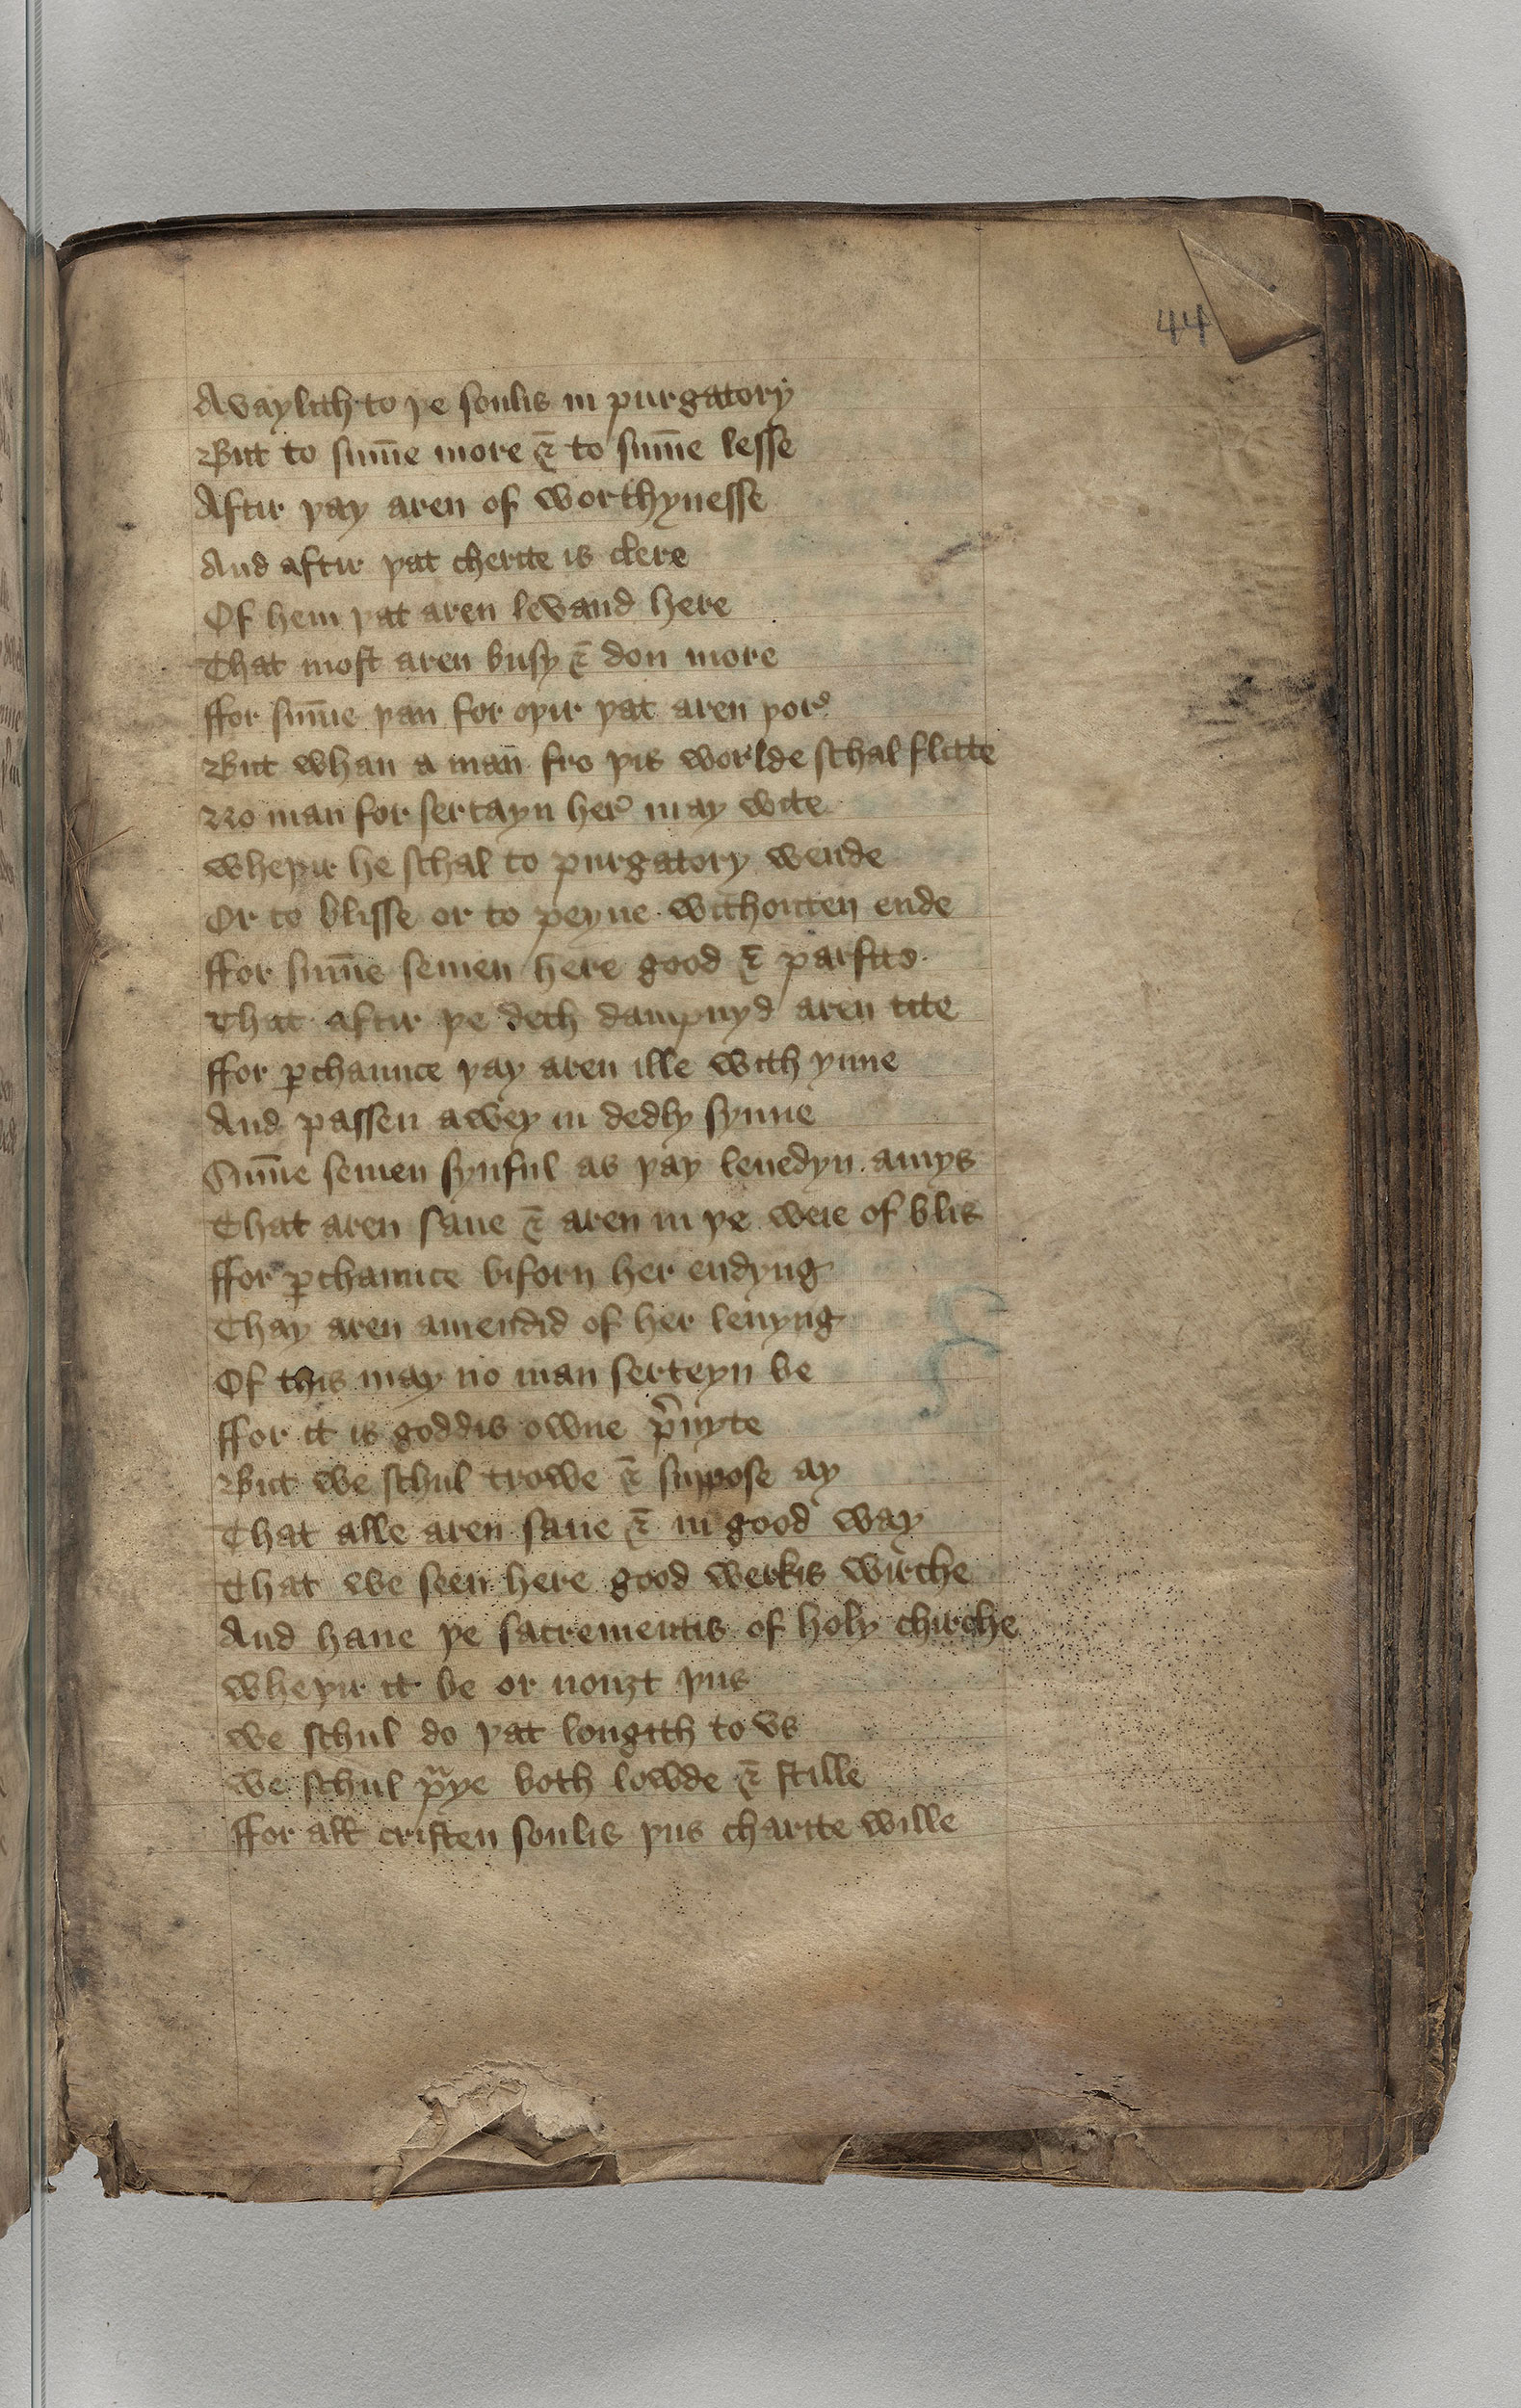 44
Avaylith to þe soulis in purgatory
But to sum̄e more & to sum̄e lesse
Aftir þay aren of worthynesse
And aftir þat cherite is clere
Of hem þat aren levand here
That most aren busy & don more
ffor sum̄e þan for oþir þat aren þore
But whan a man̄ fro þis worlde schal flitte
No man for sertayn her may wite
wheþir he schal to purgatory wende
Or to blisse or to peyne withouten ende
ffor sum̄e semen here good & parfite
That aftir þe deth dampnyd aren tite
ffor ꝑchaunce þay aren ille with ynne
And passen awey in dedly synne
Sum̄e semen synful as þay leuedyn amys
That aren saue & aren in þe weie of blis
ffor ꝑchaunce biforn her endyng
Thay aren amendid of her leuyng
Of this may no man serteyn be
ffor it is goddis owne pͥuyte
But we schul trowe & supose ay
That alle aren saue & in good way
That we seen here good werkis wirche
And haue þe sacrementis of holy chirche
wheþir it be or nouȝt þus
we schul do þat longith to vs
we schul pͣye both lowde & stille
ffor all cristen soulis þus charite wille